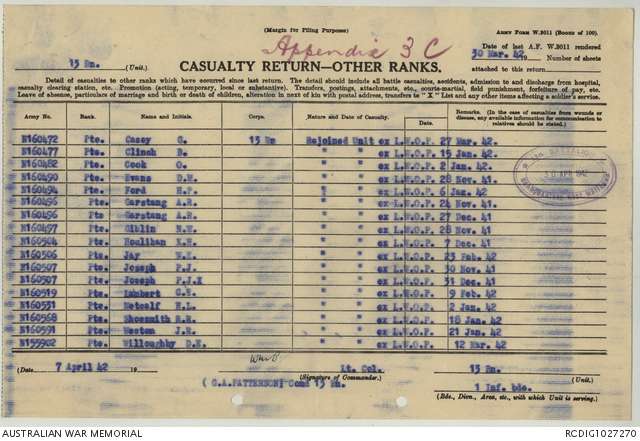 (Margin for Filing Purposes)
ARMY FORM W.3011 (Books of 100).
Appendix 3 C
Date of last A.F. W.3011 rendered
30 Mar. 42
13 Bn. (Unit.)
Number of sheets
CASUALTY RETURN—OTHER RANKS.
attached to this return
Detail of casualties to other ranks which have occurred since last return. The detail should include all battle casualties, accidents, admission to and discharge from hospital,
casualty clearing station, etc. Promotion (acting, temporary, local or substantive). Transfers, postings, attachments, etc., courts-martial, field punishment, forfeiture of pay, etc.
Leave of absence, particulars of marriage and birth or death of children, alteration in next of kin with postal address, transfers to "X" List and any other items affecting a soldier's service.
Army No. Rank. Name and Initials. Corps. Nature and Date of Casualty. Date. Remarks. (In the case of casualties from wounds or disease, any available information for communication to relatives should be stated.)
N160472 Pte. Casey G. 13 Bn Rejoined Unit ex L.W.O.P. 27 Mar. 42.
N160477 Pte. Clinch B. " " ex L.W.O.P. 15 Jan. 42.
N160482 Pte. Cook G. " " ex L.W.O.P. 2 Jan. 42.
N160490 Pte. Evans D.M. " " ex L.W.O.P. 28 Nov. 41.
N160494 Pte. Ford H.P. " " ex L.W.O.P. 6 Jan. 42
N160496 Pte. Garstang A.R. " " ex L.W.O.P. 24 Nov. 41.
N160496 Pte. Garstang A.R. " " ex L.W.O.P. 27 Dec. 41
N160497 Pte. Giblin N.W. " " ex L.W.O.P. 28 Nov. 41
N160504 Pte. Houlihan K.H. " " ex L.W.O.P. 7 Dec. 41
N160506 Pte. Jay W.K. " " ex L.W.O.P. 23 Feb. 42
N160507 Pte. Joseph P.J. " " ex L.W.O.P. 30 Nov. 41
N160507 Pte. Joseph P.J.X " " ex L.W.O.P. 31 Dec. 41
N160519 Pte. Lambert C.E. " " ex L.W.O.P. 9 Feb. 42
N160531 Pte. Metcalf H.L. " " ex L.W.O.P. 2 Jan. 42
N160568 Pte. Shoesmith R.R. " " ex L.W.O.P. 18 Jan. 42
N160591 Pte. Weston J.R. " " ex L.W.O.P. 21 Jan. 42
N155902 Pte. Willoughby D.E. " " ex L.W.O.P. 12 Mar. 42
10 APR 1942
(Date 7 April 42 19 Lt. Col. 13 Bn. (Unit.)
(Signature of Commander.)
(G.A.PATTERSON) Comd 13 Bn.
1 Inf. bde.
(Bde., Divn., Area, etc., with which Unit is serving.)
AUSTRALIAN WAR MEMORIAL
RCDIG1027270